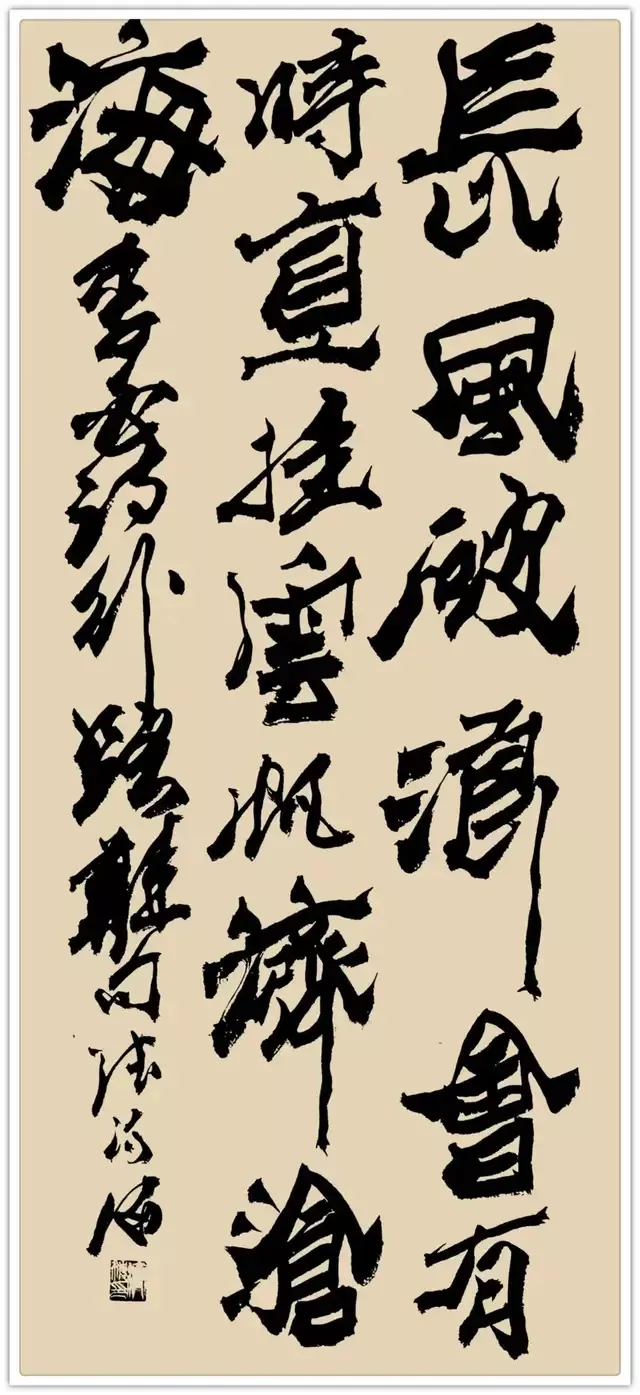 長風破浪會有
時直挂雲帆濟滄
海 李白诗行路難句